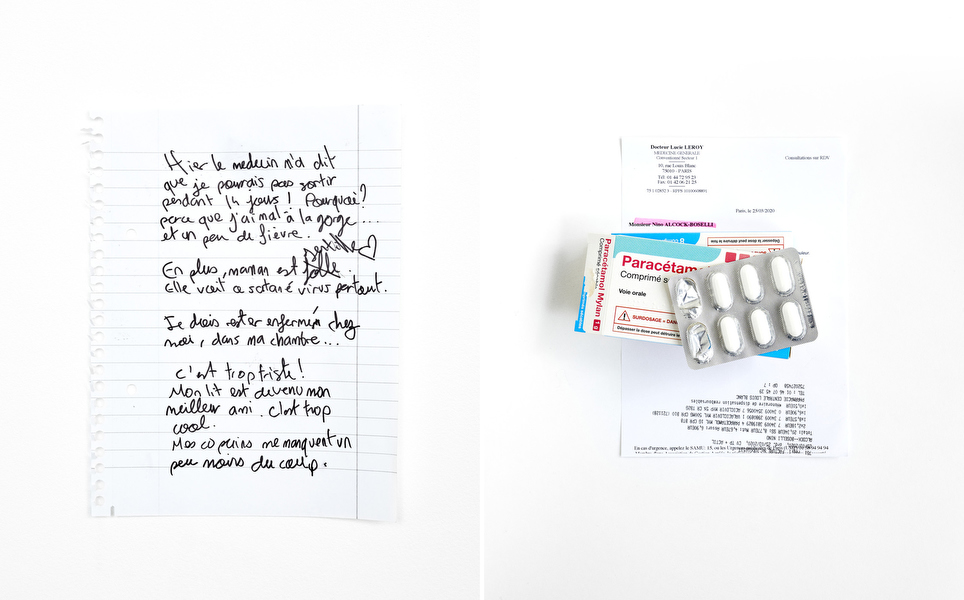 Hier le medecin m'a dit
que je pourais pas sortir
pendant 14 jours ! Pourquoi ?
parce que j'ai mal à la gorge ...
et un peu de fièvre.
gentille
En plus, maman est folle !
Elle voit ce satané virus partout.
Je dois rester enfermé chez
moi, dans ma chambre...
c'est trop triste !
Mon lit est devenu mon
meilleur ami. C'est trop
cool.
Mes copains me manquent un
peu moins du coup.
Docteur Lucie LEROY
MEDECINE GENERALE
Conventionné Secteur 1
10, rue Louis Blanc
75010 - PARIS
Tél: 01 44 72 95 23
Fax: 01 42 06 21 25
Consultations sur RDV
Paris, le 25/05/2020
Monsieur Nino ALCOCK-BOSELLI
Paracétamol Mylan 1 g
Comprimé
Paracétam
Comprimé s
Voie orale
SURDOSAGE = DAN
Dépasser la dose peut détruire le
Dépasser la dose peut détruire le foie
PHARMACIE CENTRALE LOUIS BLANC
En cas d'urgence, appelez le SAMU: 15, ou les Urgences